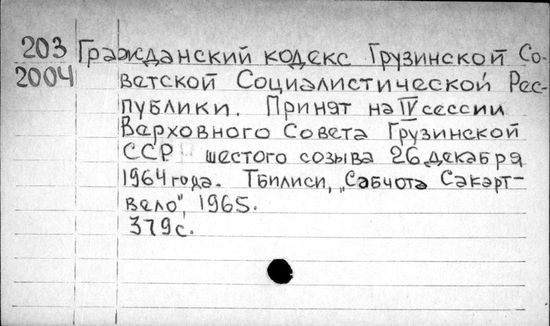 203 Гражданский кодекс Грузинской Со-
2004 ветской Социалистической Рес-
публики. Принят на IV сессии
Верховного Совета Грузинской
ССР шестого созыва 26 декабря
1964 года. Тбилиси, „Сабчота Сакарт-
вело", 1965.
379с.